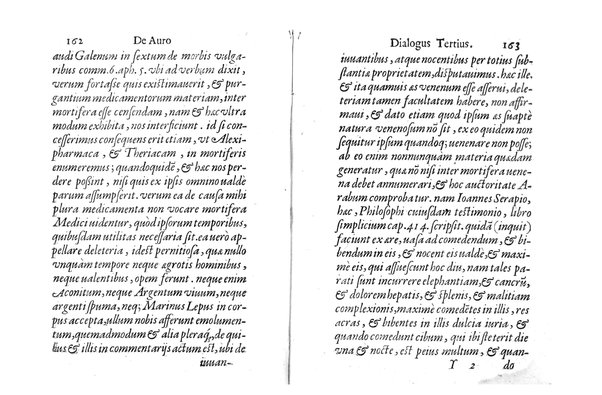 162 De Auro
audi Galenum in sextum de morbis vulga-
ribus comm. 6. aph. 5. vbi ad verbum dixit,
verum fortasse quis existimauerit, & pur-
gantium medicamentorum materiam, inter
mortifera esse censendam, nam & hæc vltra
modum exhibita, nos interficiunt. id si con-
cesserimus consequens erit etiam, vt Alexi-
pharmaca, & Theriacam, in mortiferis
enumeremus; quandoquidē, & hæc nos per-
dere possint, nisi quis ex ipsis omnino ualdè
parum assumpserit. verum ea de causa mihi
plura medicamenta non vocare mortifera
Medici uidentur, quòd ipsorum temporibus,
quibusdam utilitas necessaria sit. ea uerò ap-
pellare deleteria, idest pernitiosa, quæ nullo
vnquàm tempore neque agrotis hominibus,
neque ualentibus, opem ferunt. neque enim
Aconitum, neque Argentum viuum, neque
argenti spuma, neq; Marinus Lepus in cor-
pus accepta, ullum nobis afferunt emolumen-
tum, quemadmodum & alia pleraq́, de qui-
bus & illis in commentarijs actum est, ubi de
iuuan-
Dialogus Tertius. 163
iuuantibus, atque nocentibus per totius sub-
stantiæ proprietatem, disputauimus. hæc ille.
& ita quamuis as venenum esse asserui, dele-
teriam tamen facultatem habere, non affir-
maui, & dato etiam quod ipsum as suaptè
natura venenosum nō sit, ex eo quidem non
sequitur ipsum quandoq; uenenare non posse;
ab eo enim nonnunquàm materia quædam
generatur, quæ nō nisi inter mortifera uene-
na debet annumerari, & hoc auctoritate A-
rabum comprobatur. nam Ioannes Serapio,
hæc, Philosophi cuiusdam testimonio, libro
simplicium cap. 414. scripsit. quidā (inquit)
faciunt ex ære, uasa ad comedendum, & bi-
bendum in eis, & nocent eis ualdè, & maxi-
mè eis, qui assuescunt hoc diu, nam tales pa-
rati sunt incurrere elephantiam, & cancrū,
& dolorem hepatis, & splenis, & malitiam
complexionis, maximè comedētes in illis, res
acras, & bibentes in illis dulcia iuria, &
quando comedunt cibum, qui ibi steterit die
vna & nocte, est peius multum, & quan-
Y 2 do